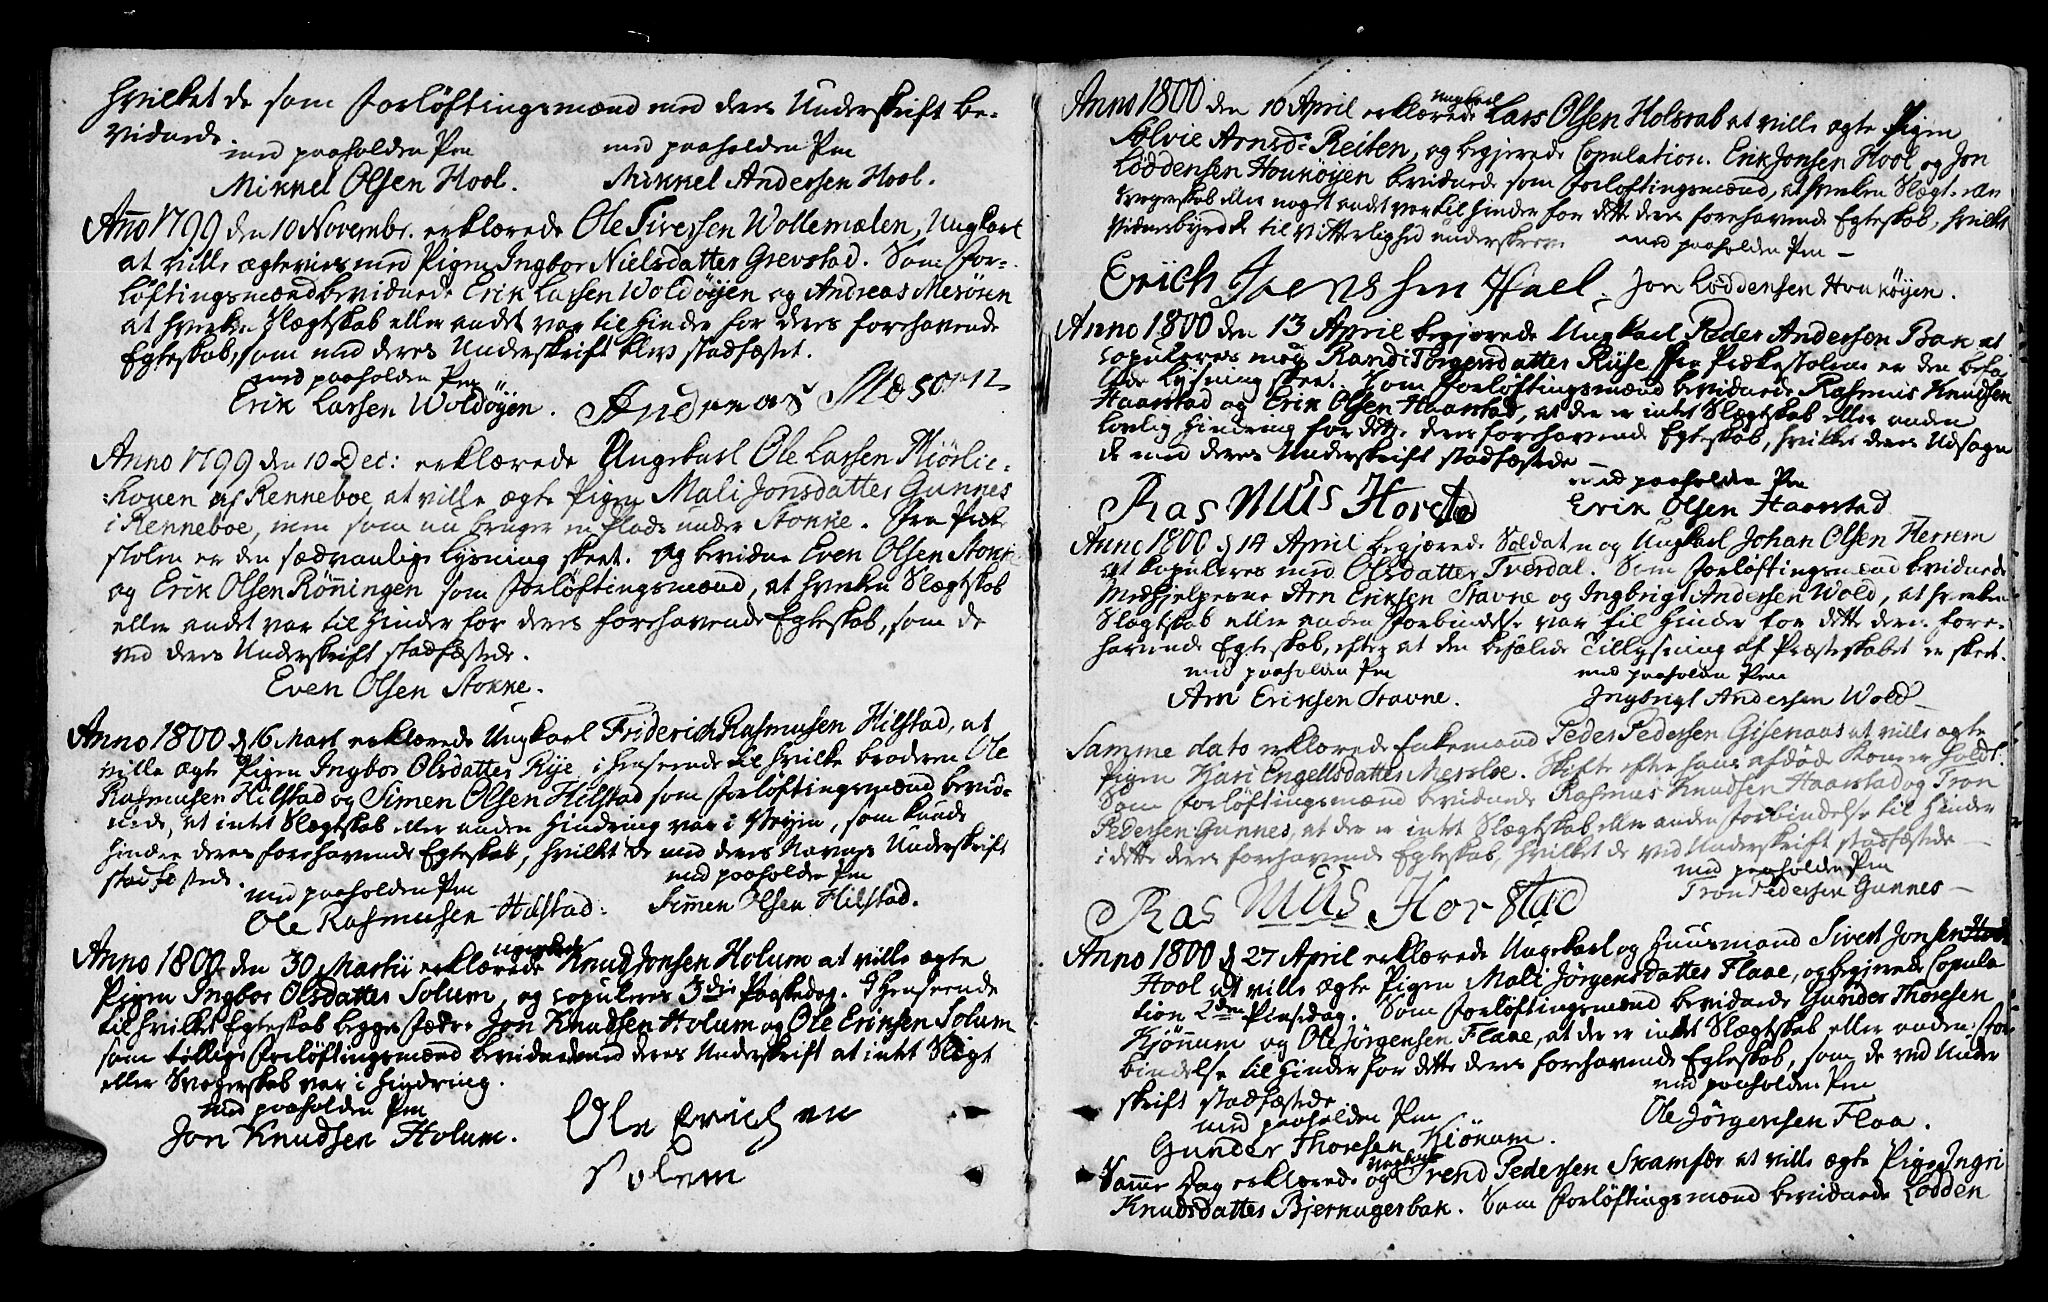 hvilket de som Forløftingsmænd med deres Underskrift be-
vidnede.
med paaholden Pen
med paaholden Pen
Mikkel Olsen Hool.
Mikkel Andersen Hool.
Año 1799 den 10 Novembr. erklærede Ole Siversen Wollemælen, Ungkarl
at ville ægtevies med Pigen Ingbor Nielsdatter Grevstad. Som For-
løftingsmænd bevidnede Erik Larsen Woldøyen og Andreas Mesøren
at hverken Slægtskab eller andet var til Hinder for deres forehavende
Egteskab, som med deres Underskrift blev stadfæstet.
med paaholden Pen
Erik Larsen Woldøyen.
Andreas Mesøren
Anno 1799 den 10 Dec: erklærede Ungekarl Ole Larsen
af Renneboe at ville ægte Pigen Mali Jonsdatter Gunnes
i Renneboe, men som nu bruger en Plads under Stokke. Fra Præke
stolen er den sædvanlige Lysning skeet. Og bevidne Even Olsen Stokke
og Erik Olsen Rønningen som Forløftingsmænd, at hverken Slægtskab
eller andet var til Hinder for deres forehavende Egteskab, som de
ved deres Underskrift stadfæstede.
Even Olsen Stokke.
Anno 1800 d 16 Mart erklærede Ungkarl Friderich Rasmusen Hilstad, at
ville ægte Pigen Ingbor Olsdatter Rye, i Henseende til hvilke Broderen Ole
Rasmusen Hilstad og Simen Olsen Hilstad som Forløftingsmænd bevid-
nede, at intet Slægtskab eller anden Hindring var i Veyen, som kunde
hindre deres forehavende Egteskab, hvilket de med deres Navns Underskrift
stadfæstede.
med paaholden Pen
med paaholden Pen
Ole Rasmusen Hilstad.
Simen Olsen Hilstad.
Anno 1800 den 30 Martii erklærede Ungekarl Knud Jonsen Holum at ville ægte
Pigen Ingbor Olsdatter Solum, og copuleres 3die Paaskedag. I Henseende
til hvilket Egteskab begge Fædre Jon Knudsen Holum og Ole Eriksen Solum
som tillige Forløftingsmænd bevidnede med deres Underskrift at intet Slægt
eller Svogerskab var i Hindring.
med paaholden Pen
Jon Knudsen Holum.
Ole Erichsen
Solem
Anno 1800 den 10 April erklærede Ungkarl Lars Olsen Holsrab at ville ægte Pigen
Solvie Arnsd: Reiten, og begjerede Copulation. Erik Jonsen Hool og Jon
Loddensen Houkøyen bevidnede som Forløftingsmænd, at hverken Slægt- eller
Svogerskab eller noget andet var til Hinder for dette deres forehavende Egteskab, hvilket
Vidnesbyrd de til Vitterlighed underskrev.
med paaholden Pen –
Erich Joenssen Hoel.
Jon Loddensen Houkøyen.
Anno 1800 den 13 April begjerede Ungkarl Peder Andersen Bak at
copuleres med Randi Torgersdatter Riise. Fra Prækestolen er den befa-
lede Lysning skeet. Som Forløftingsmænd bevidnede Rasmus Knudsen
Haarstad og Erik Olsen Haarstad, at der er intet Slægtskab eller anden
lovlig Hindring for dette deres forehavende Egteskab, hvilket deres Udsagn
de med deres Underskrift stadfæstede –
med paaholden Pen
Rasmus Horstad
Erik Olsen Haarstad
Anno 1800 d 14 April begjærede Soldaten og Ungkarl Johan Olsen Herrem
at kopuleres med Olsdatter Tverdal. Som Forløftingsmænd bevidnede
Medhjelperne Arn Eriksen Stavne og Ingbrigt Andersen Wold, at hverken
Slægtskab eller anden Forbindelse var til Hinder for dette deres fore-
havende Egteskab, efter at den befalede Tillysning af Præsteskabet er skeet.
med paaholden Pen
med paaholden Pen
Arn Eriksen Stavne.
Ingbrigt Andersen Wold –
Samme dato erklærede Enkemand Peder Pedersen Gisenaas at ville ægte
Pigen Kari Engelsdatter Mersloe. Skifte efter hans afdøde Kone er holdt.
Som Forløftingsmænd bevidnede Rasmus Knudsen Haarstad og Tron
Pedersen Gunnes, at der er intet Slægtskab eller anden Forbindelse til Hinder
i dette deres forehavende Egteskab, hvilket de ved Underskrift stadfæstede –
med paaholden Pen
Rasmus Horstad
Tron Pedersen Gunnes –
Anno 1800 d 27 April erklærede Ungekarl og Huusmand Sivert Jonsen
Hool at ville ægte Pigen Mali Jørgensdatter Flaae, og begjerede Copula
tion 2den Pinsedag. Som Forløftingsmænd bevidnede Gunder Thoresen
Kjønum og Ole Jørgensen Flaae, at der er intet Slægtskab eller anden For
bindelse til Hinder for dette deres forehavende Egteskab, som de ved Under
skrift stadfæstede
med paaholden Pen
med paaholden Pen
Gunder Thoresen Kjønum.
Ole Jørgensen Flaa.
Samme Dag erklærede Ungkarl og Trend Pedersen Skamfær at ville ægte Pigen Ingri
Knudsdatter Bjerkagersbak. Som Forløftingsmænd bevidnede Lodden